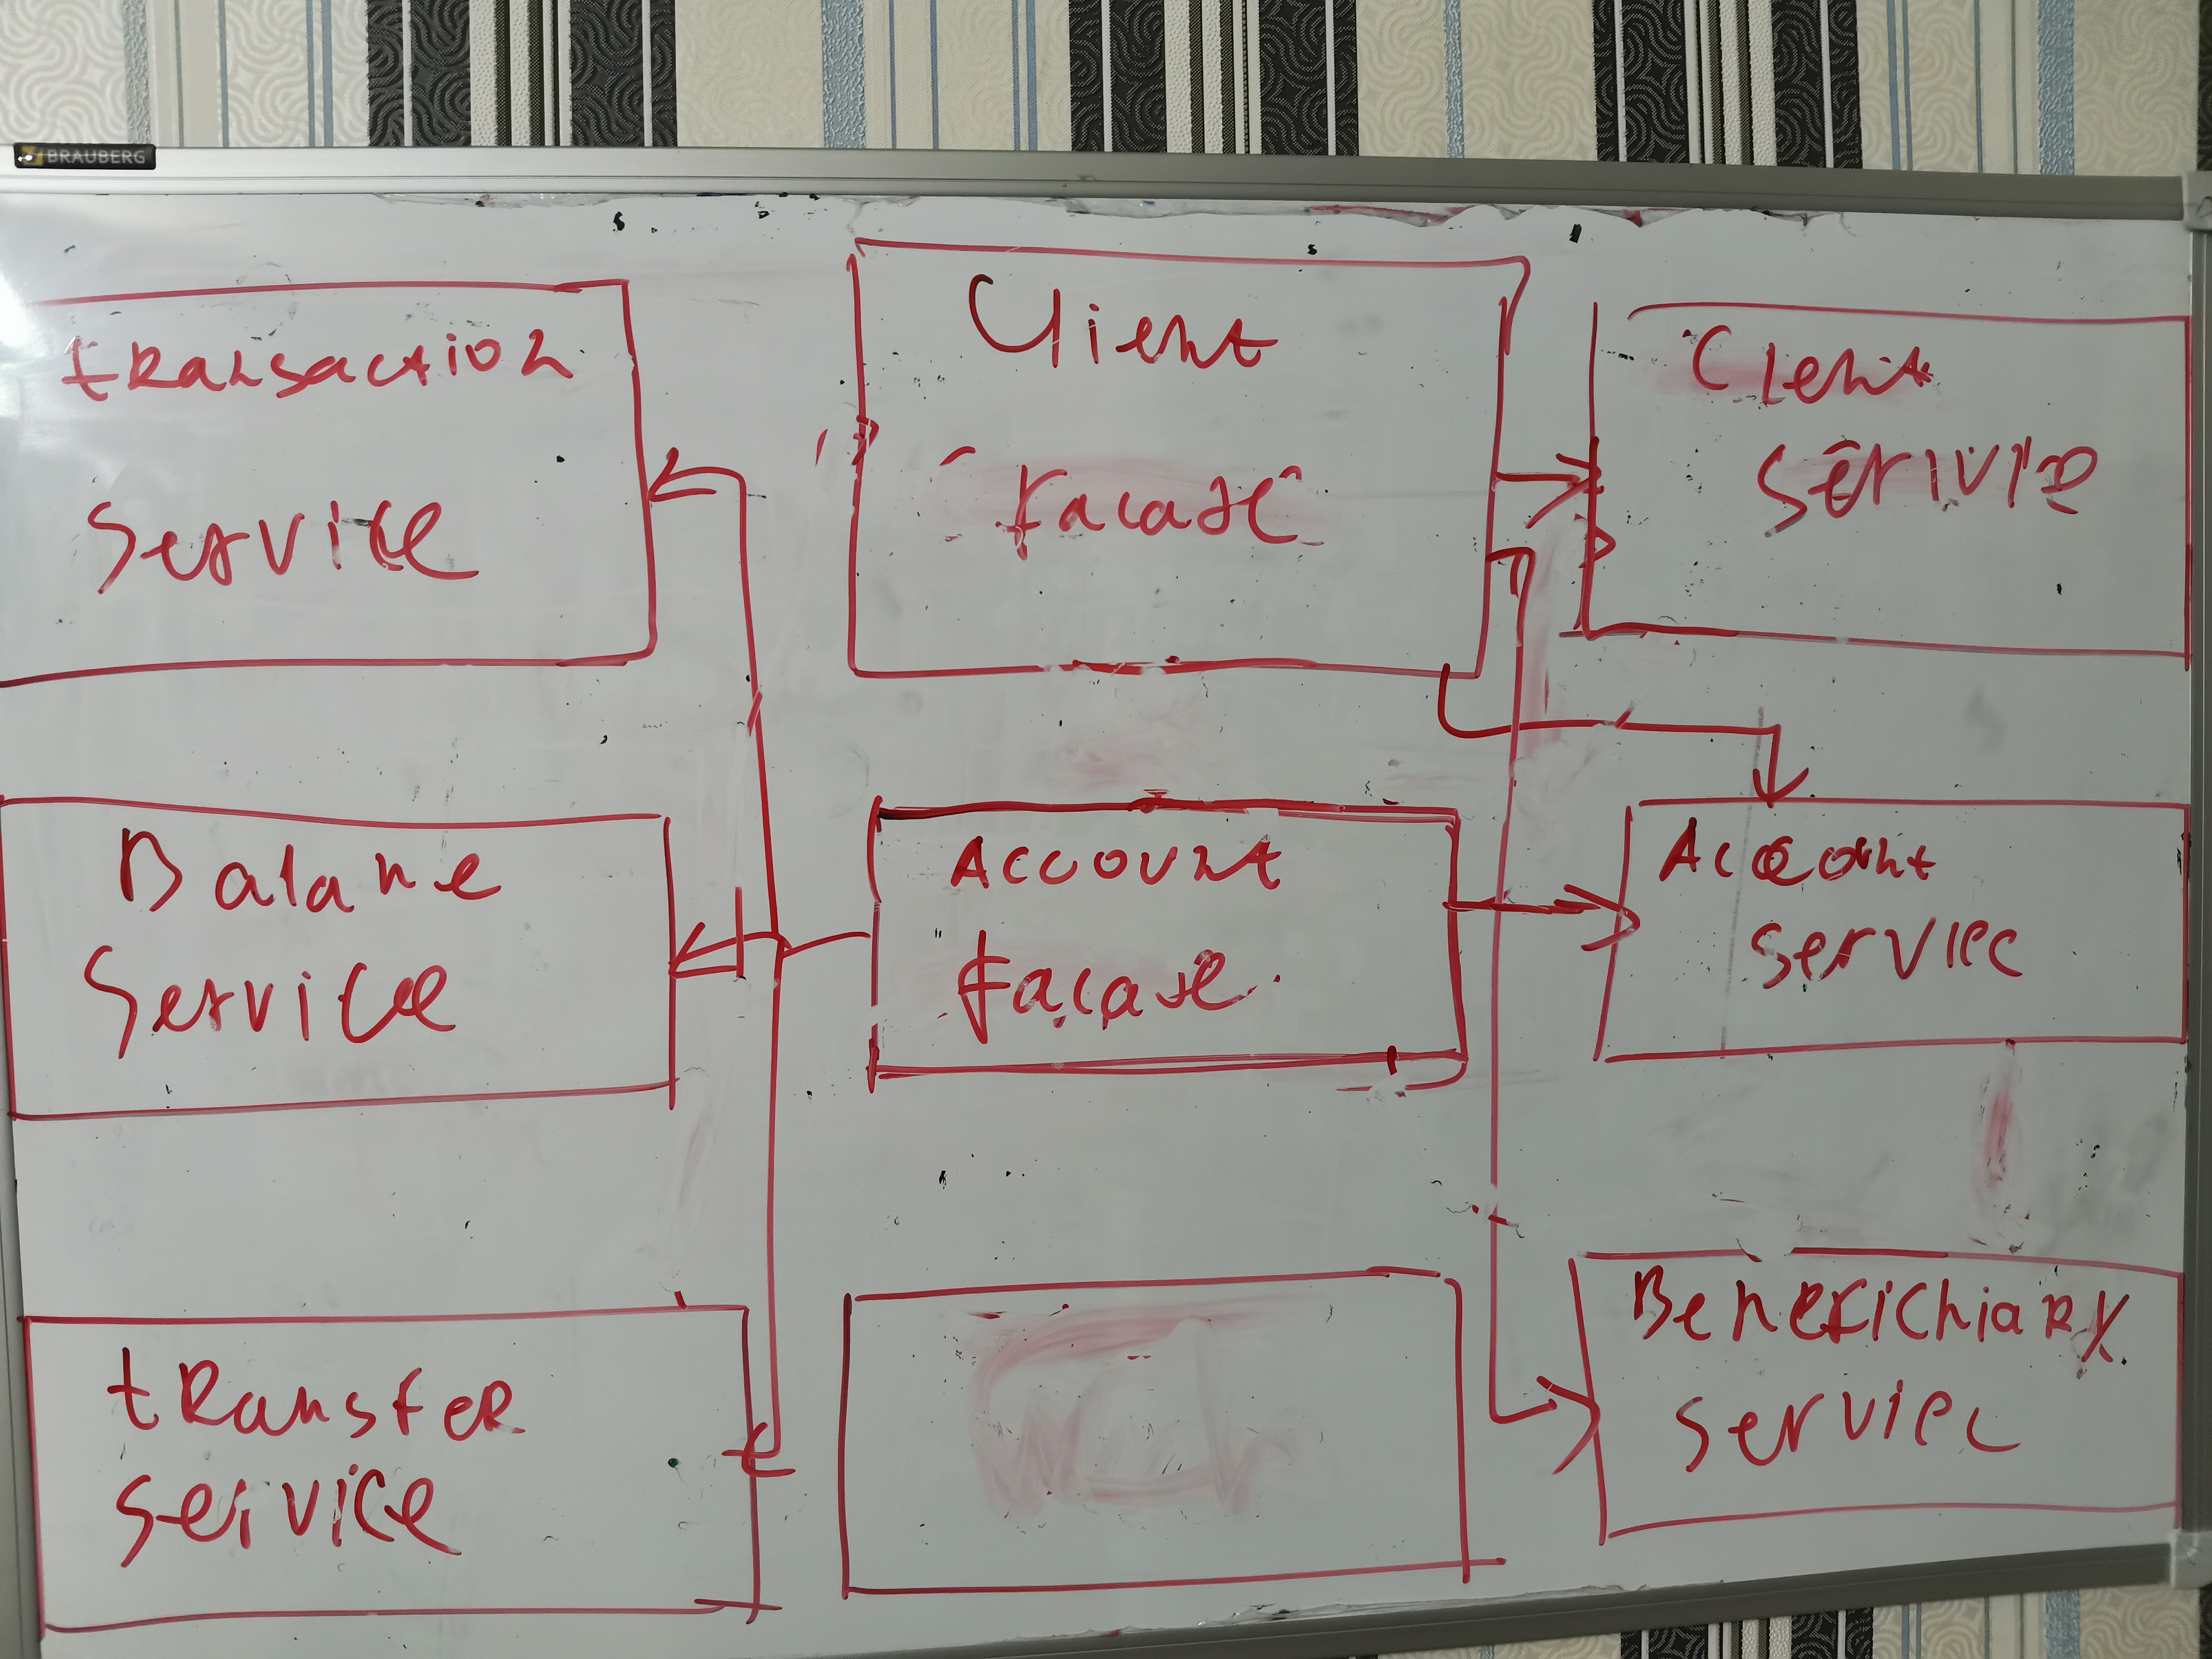 BRAUBERG
transaction
Service
Client
facade
Client
Service
Balance
Service
Account
facade
Account
Service
transfer
service
Benefichiary
Service